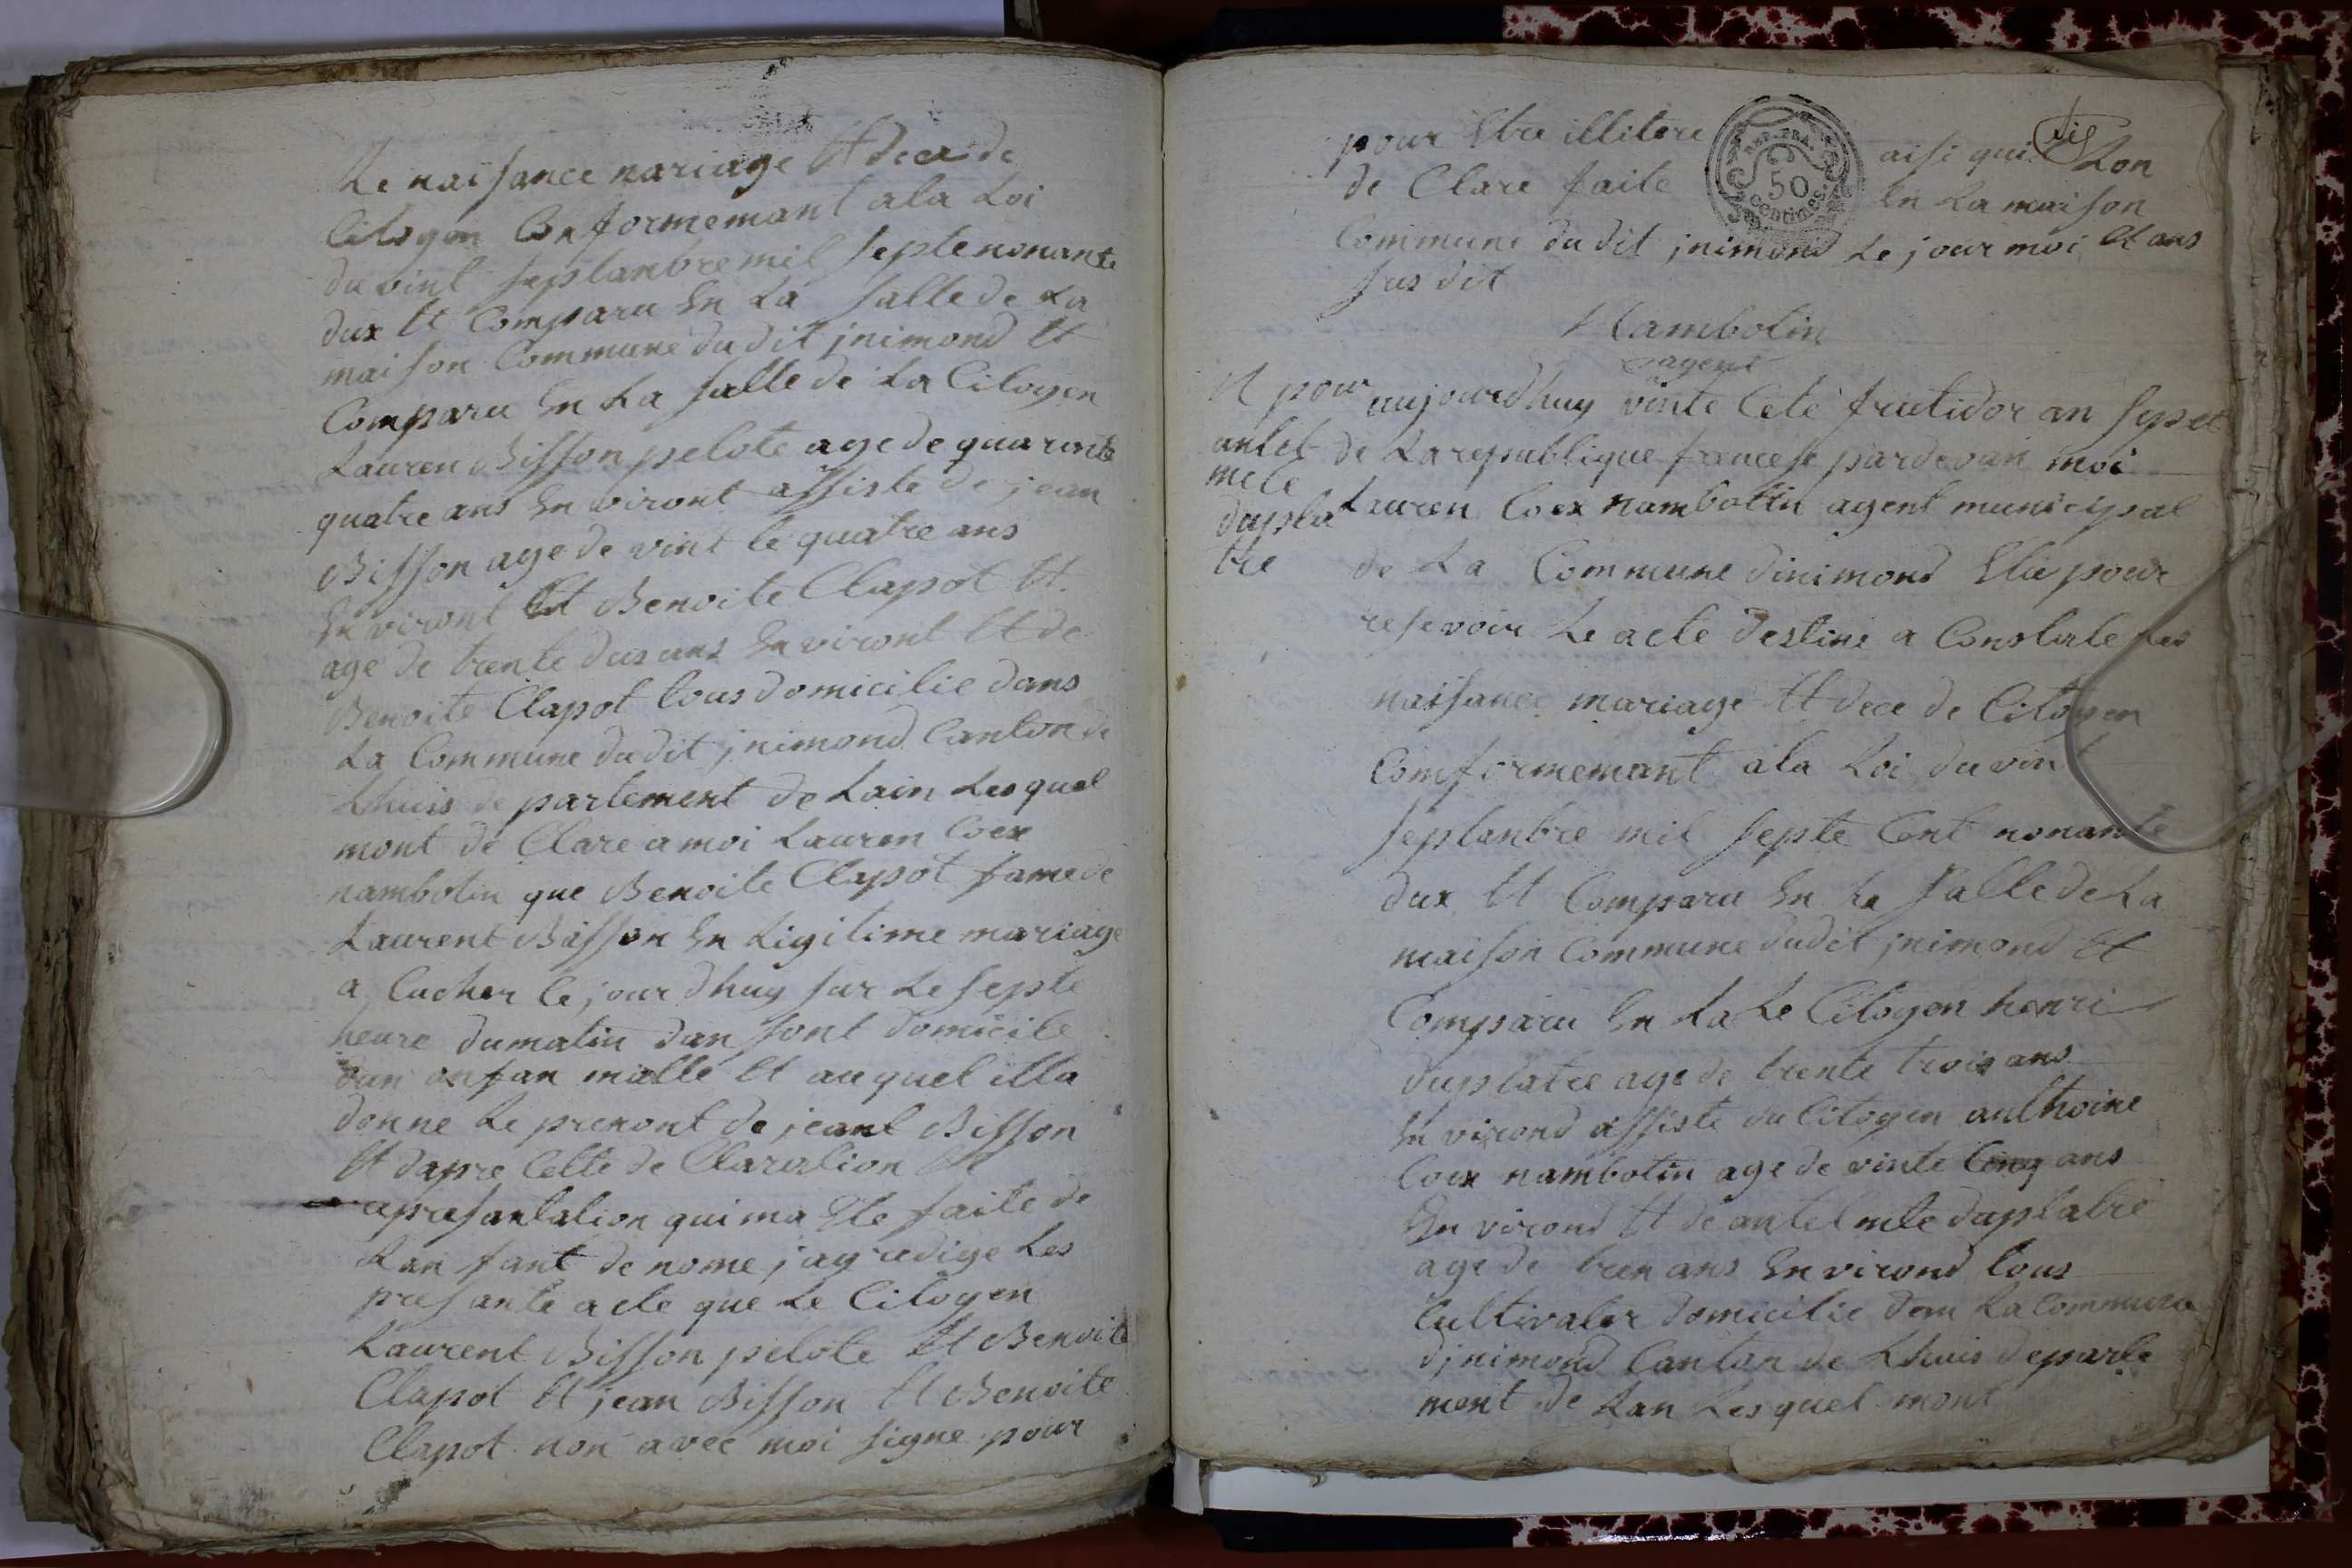 Le naissance mariage Et dece de
Citoyen Conformemant a la Loi
du vint septanbre mil septe nonante
dux Et Comparu En La salle de La
maison Commune du dit jnimond Et
Comparu En La salle de La Citoyen
Lauren Bisson pelote age de quarante
quatre ans En viront assiste de jean
Bisson age de vint le quatre ans
En viront Et Benoite Clapot Et
age de trente dus ans En viront Et de
Benoite Clapot tous domicilie dans
La Commune du dit jnimond Canton de
Lhuis de partement de Lain Lesquel
mont de Clare a moi Lauren Coex
nambotin que Benoite Clapot fame de
Laurent Bisson En Ligitime mariage
a Cucher le jour dhuy sur Le septe
heure du matin dan sont domicile
dun anfan malle Et au quel illa
donne Le prenont de jeant Bisson
Et dapre Cette de Claration Et
apresantation qui ma Ete faite de
Lan fant de nome jay redige Les
presante acte que Le Citoyen
Laurent Bisson pelote Et Benoite
Clapot Et jean Bisson Et Benoite
Clapot non avec moi signe pour
pour Etre illitere aisi qui Lon
de Clare faite En La maison
Commune du dit jnimond Le jour moi Et ans
sus dit
REP. FRA.
50
centimes
Nambotin
agent
N pour
antel
mele
dupla
tre
aujourdhuy vinte Cete fructidor an sepet
de La republique francese par devan moi
Lauren Coex nambotin agent municipal
de La Commune dinimond Elu pour
resevoir Le acte destine a Constate Les
naissance mariage Et dece de Citoyen
Comformemant a la Loi du vint
septanbre mil septe Cent nonante
dux Et Comparu En La salle de La
maison Commune du dit jnimond Et
Comparu En La Le Citoyen henri
duplatre age de trente trois ans
En virond assiste du Citoyen anthoine
Coex nambotin age de vinte Cinq ans
En virond Et de antelmele duplatre
age de tren ans En virond tous
Cultivater domicilie dan La Commune
djnimond Canton de Lhuis departe
ment de Lan Lesquel mont